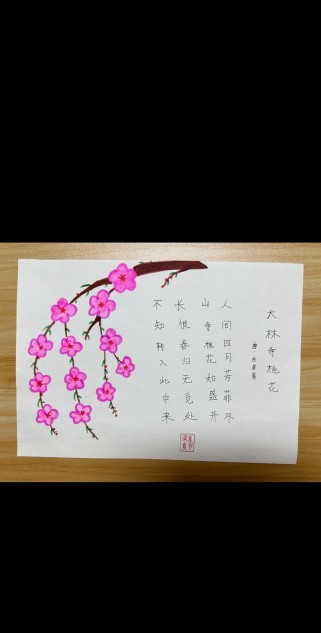 大林寺桃花
唐 白居易
人间四月芳菲尽
山寺桃花始盛开
长恨春归无觅处
不知转入此中来